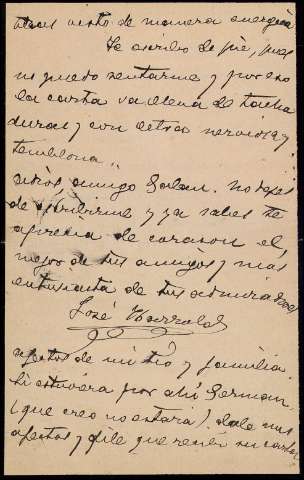 esto de manera energica
Te escribo de pie, pues
no puedo sentarme y por eso
la carta va llena de tacha
duras y con letra nerviosa y
temblona..
adios amigo Galan. no dejes
de escribirme y ya sabes te
aprecia de corazon el,
mejor de tus amigos y mas
entusiasta de tus admiradores
José
afectos de mi tio y familia.
Si estuviera por ahi German
(que creo no estará). dale mis
afectos y dile que recibi su carta